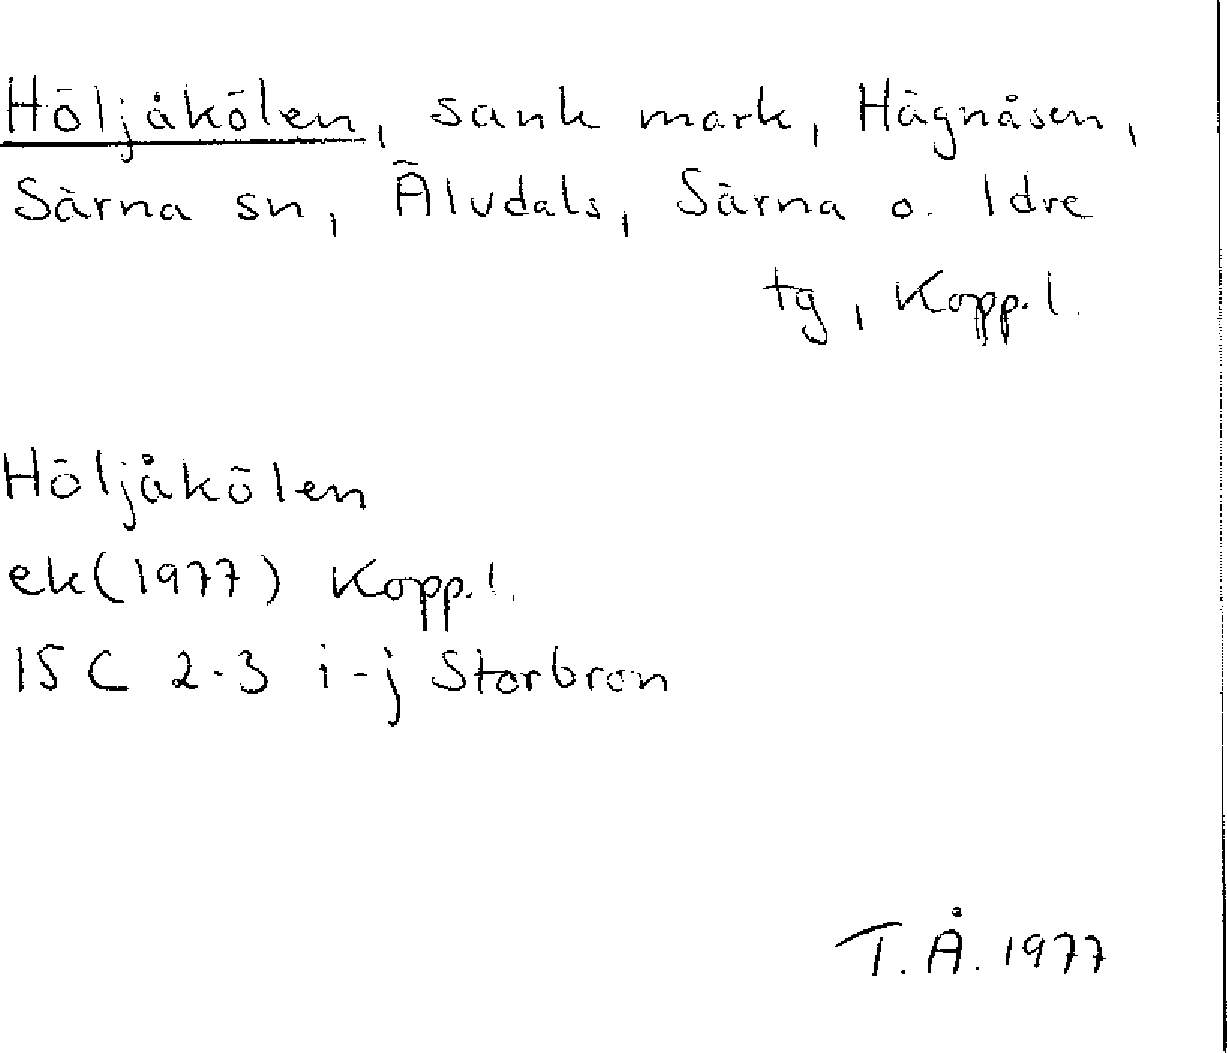 Höljåkölen, sank mark, Hägnåsen,
Särna sn, Älvdals, Särna o. Idre
tg, Kopp.l.
Höljåkölen
ek(1977) Kopp.l.
15 C 2-3 i-j Storbron
T.Å. 1977